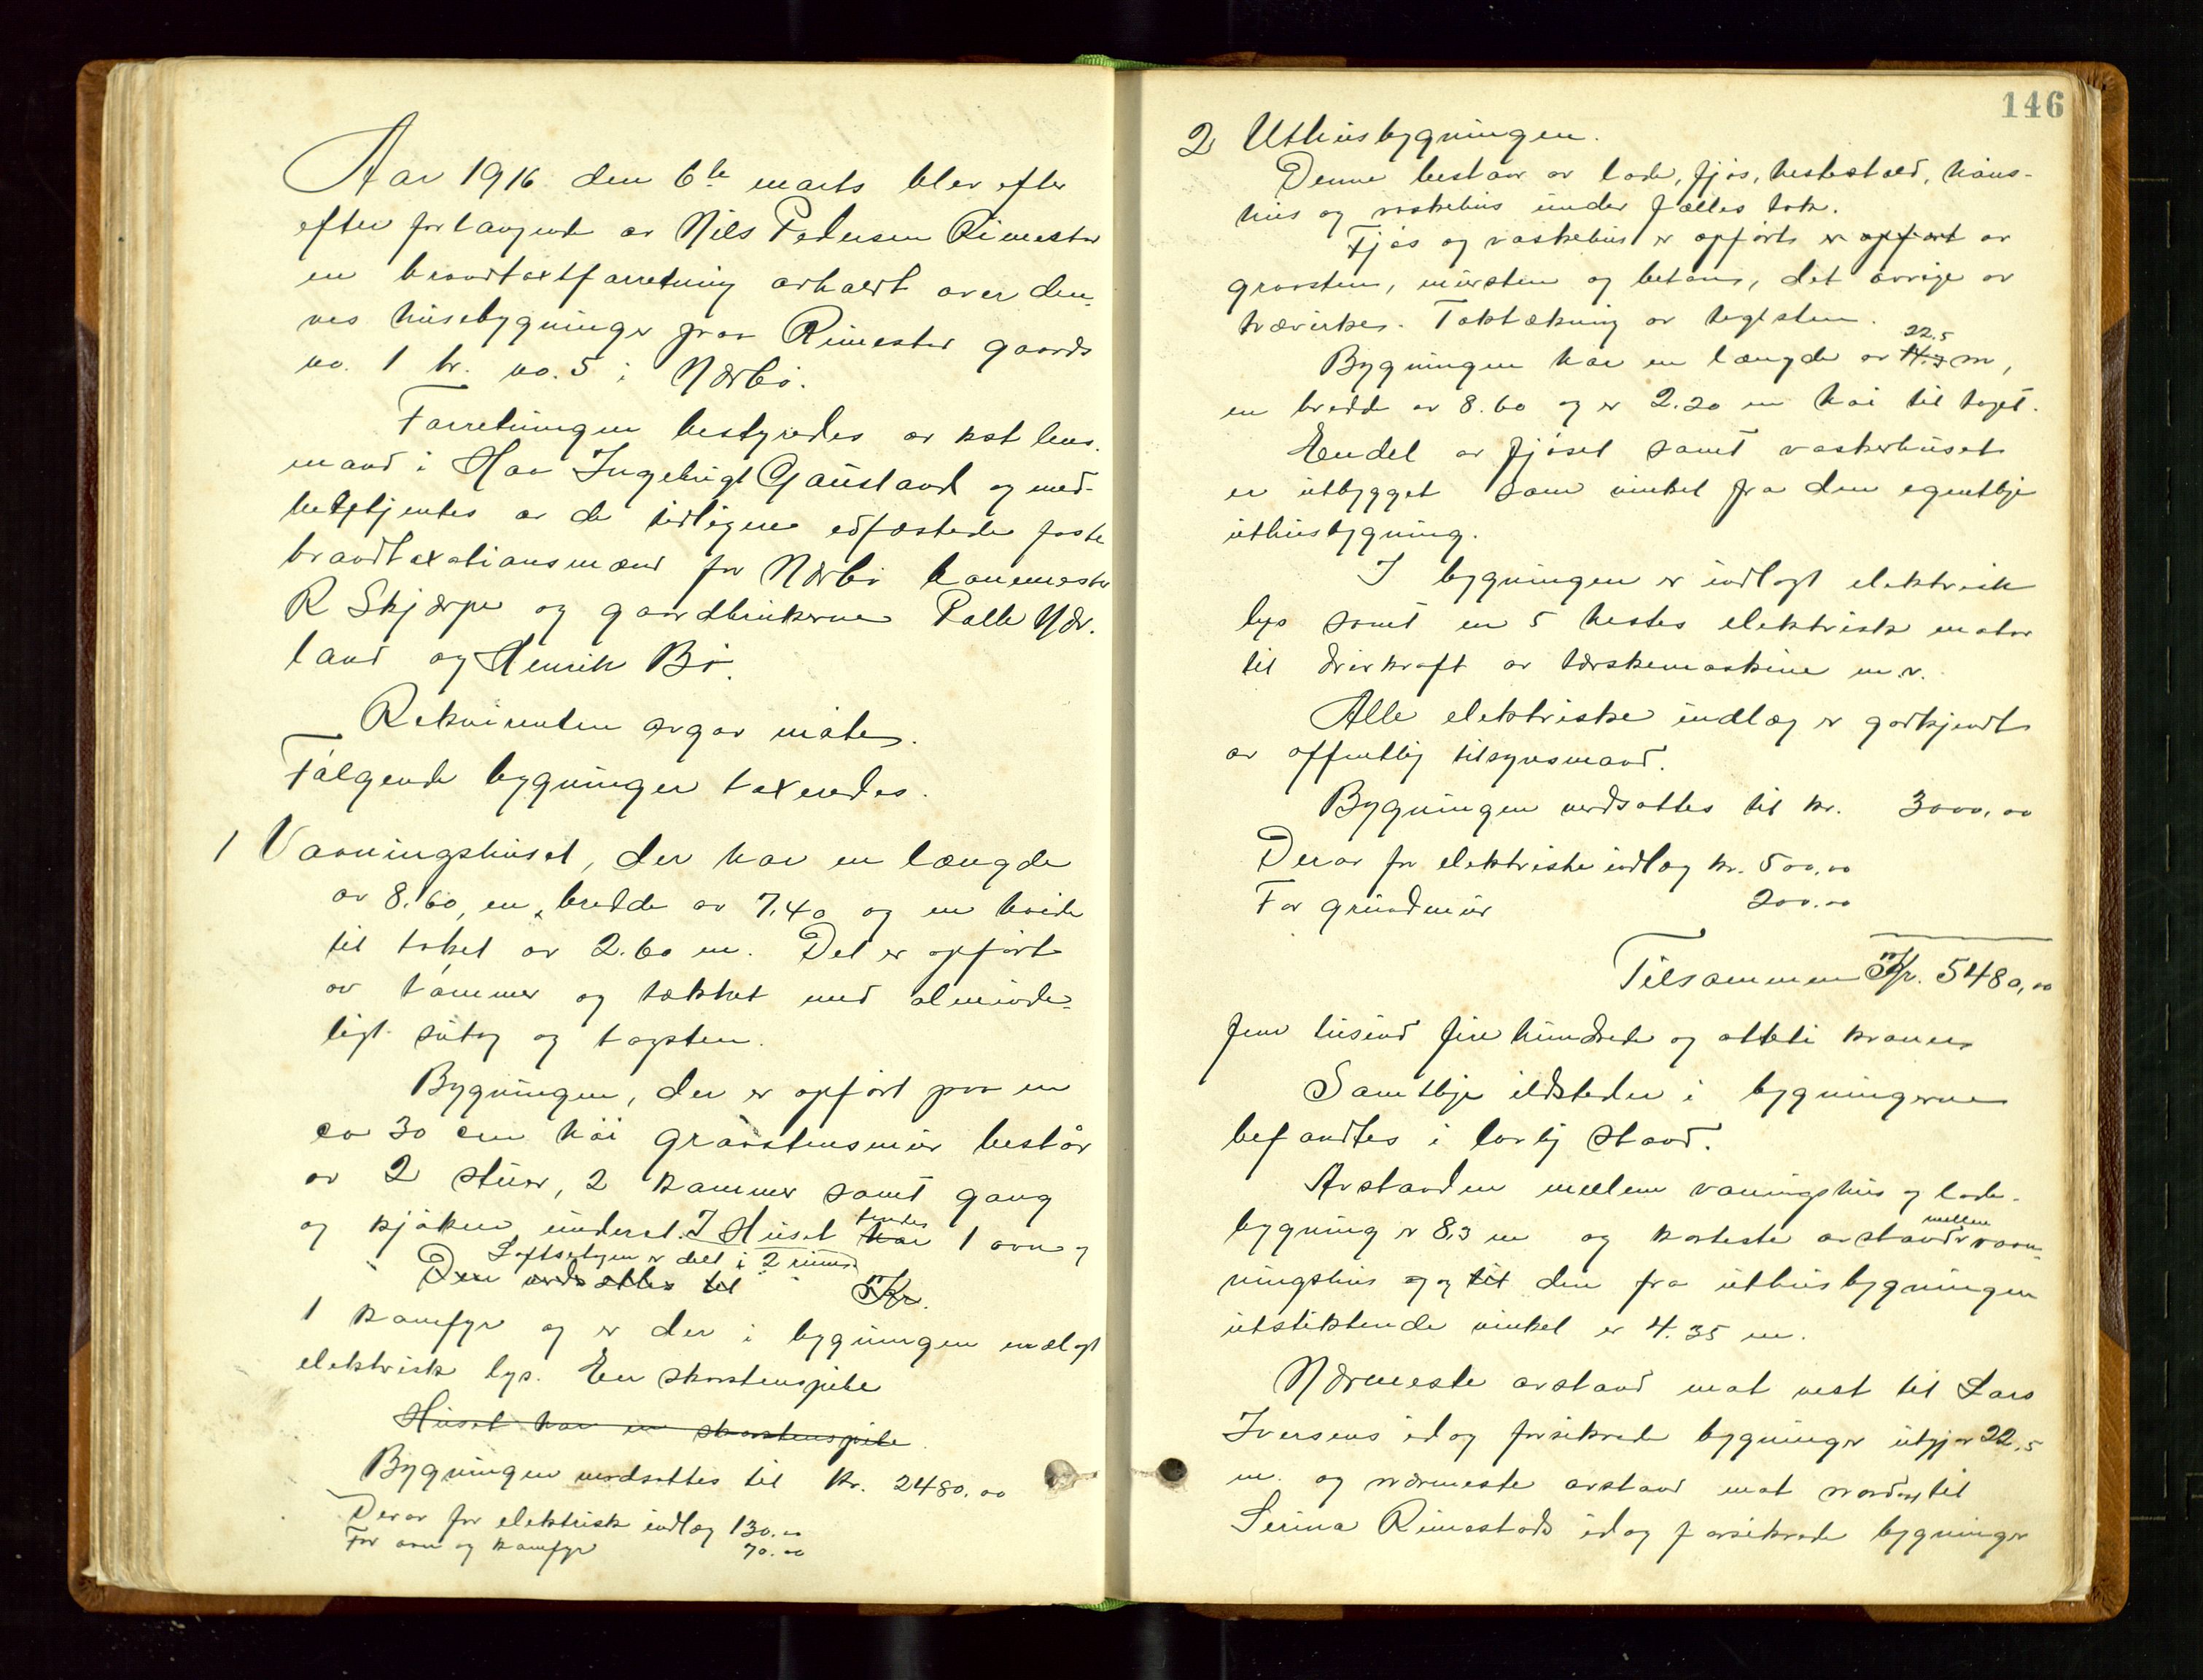 Aar 1916 den 6te marts blev efter
efter forlangende av Nils Pedersen Rimestad
en brandtaxtforretning avholdt over den-
nes husebygninger paa Rimestad gaards
no. 1 br. no. 5 i Nærbø.
Forretningen bestyredes av kst lens-
mand i Haa Ingebrigt Gaustand og med-
betjentes av de tidligere edfæstede faste
brandtaxationsmænd for Nærbø kanemester
R Skjærpe og gaardbrukerne Palle Nær-
land og Henrik Bø.
Rekvirenten avgav møte.
Følgende bygninger taxeredes.
1 Vaaningshuset, der har en længde
av 8.60, en bredde av 7.40 og en høide
til taket av 2.60 m. Det er opført
av tømmer og tækket med alminde-
ligt sutag og tagsten.
Bygningen, der er opført paa en
ca 30 cm høi graastensmur består
av 2 stuer, 2 kammer samt gang
og kjøken underst. I Huset har findes 1 ovn og
Loftsetagen er delt i 2 rum
Den værdsættes til Kr.
1 komfyr og er der i bygningen indlagt
elektrisk lys. En skorstenspibe
Huset har en skorstenspibe
Bygningen værdsattes til kr. 2480.00
Derav for elektrisk indlæg 130.00
For ovn og komfyr 70.00
146
2 Uthusbygningen.
Denne bestaar av lade, fjøs, hestestald, høns-
hus og vaskehus under fælles tak.
Fjøs og vaskehus er opførts er opført av
graasten, mursten og betons, det øvrige av
trævirke. Taktækning av teglsten.
22,5
Bygningen har en længde av 14.3 m,
en bredde av 8.60 og er 2.20 m høi til taget.
Endel av fjøset samt vaskerhuset
er utbygget som vinkel fra den egentlige
uthusbygning.
I bygningen er indlagt elektrisk
lys samt en 5 hestes elektrisk motor
til drivkraft av tærskemaskine m.v.
Alle elektriske indlæg er godkjendt
av offentlig tilsynsmand.
Bygningen verdsattes til kr. 3000,00
Derav for elektriske indlæg kr. 500,00
For grundmur 200.00
Tilsammen Kr. 5480,00
fem tusind fire hundrede og otteti kroner
Samtlige ildsteder i bygningerne
befandtes i lovlig stand.
Avstanden mellem vaningshus og lade-
bygning er 8,3 m og korteste avstand mellem vaan-
ningshus og og til den fra uthusbygningen
utstikkende vinkel er 4.35 m.
Nærmeste avstand mot vest til Lars
Iversens idag forsikrede bygninger utgjør 22,5
m. og nærmeste avstand mot nordøst til
Serina Rimestads idag forsikrede bygninger